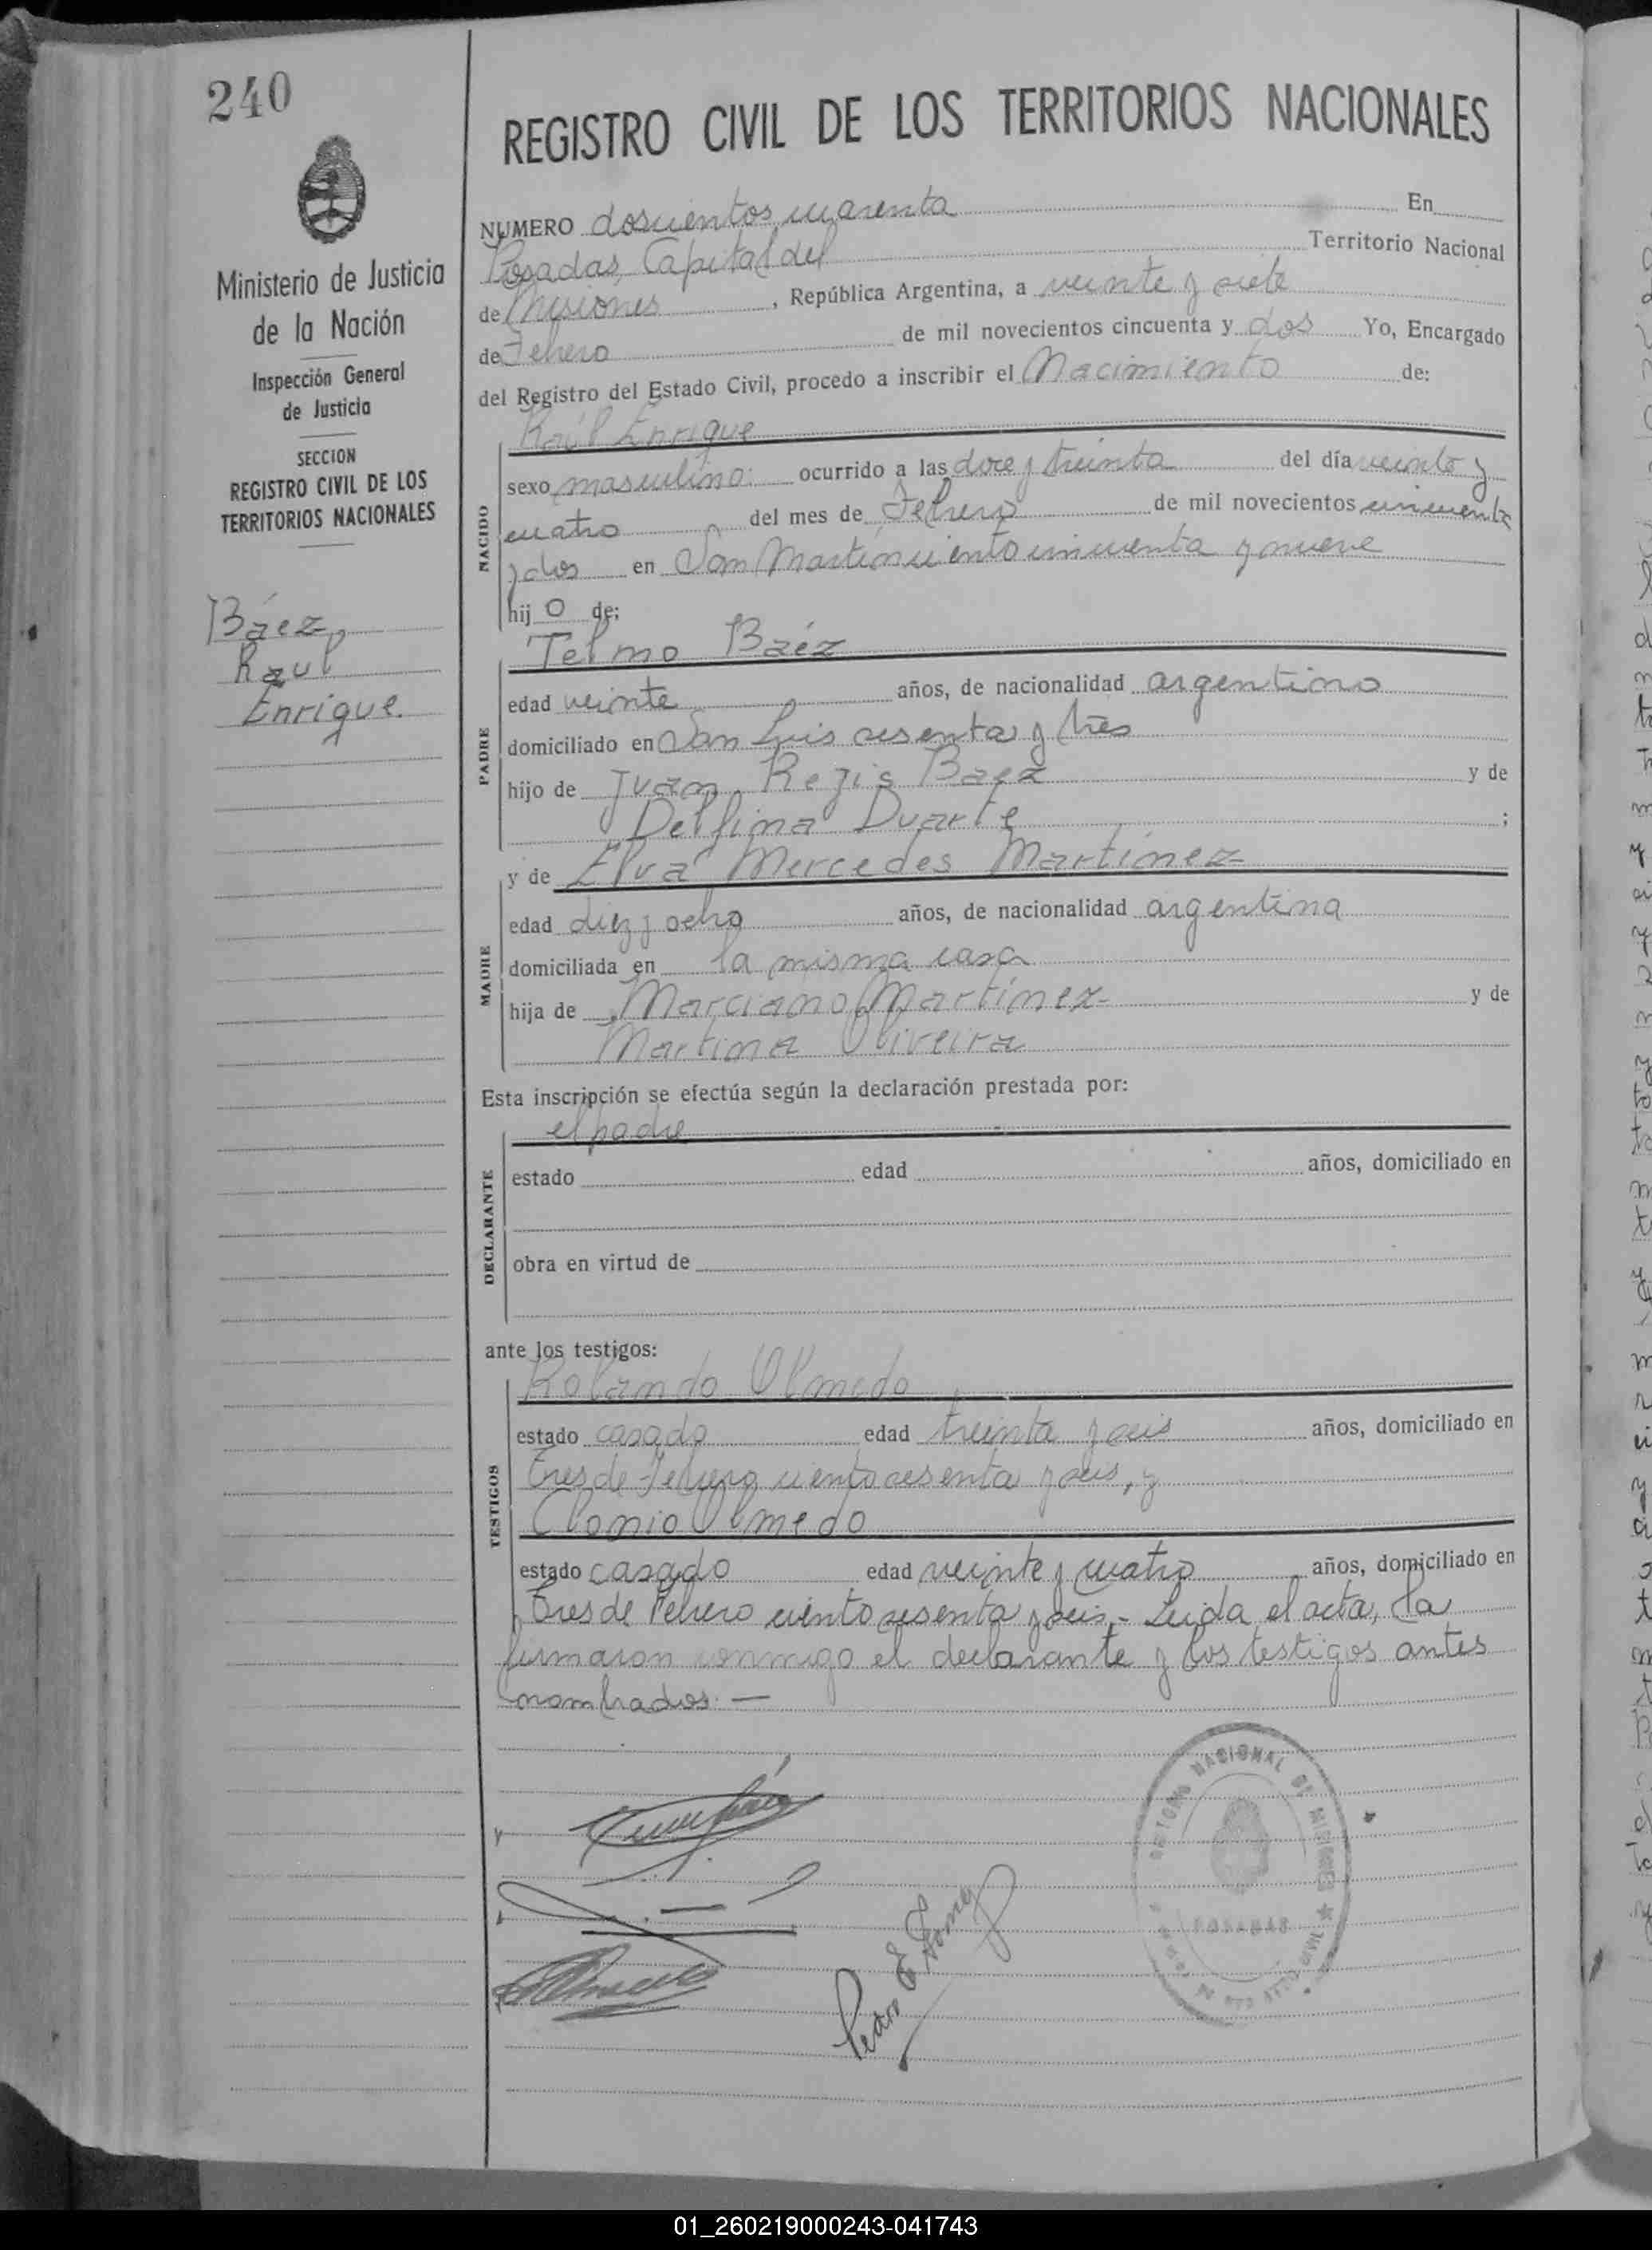 240
Ministerio de Justicia
de la Nación
Inspección General
de Justicia
SECCION
REGISTRO CIVIL DE LOS
TERRITORIOS NACIONALES
Báez
Raul
Enrique.
REGISTRO CIVIL DE LOS TERRITORIOS NACIONALES
NUMERO doscientos cuarenta En
Posadas, Capital del Territorio Nacional
de Misiones, República Argentina, a veinte y siete
de Febrero de mil novecientos cincuenta y dos Yo, Encargado
del Registro del Estado Civil, procedo a inscribir el Nacimiento de:
Raúl Enrique
NACIDO
sexo masculino: ocurrido a las doce y treinta del día veinte y
cuatro del mes de Febrero de mil novecientos cincuenta
y dos en San Martín ciento cincuenta y nueve
hijo de:
Telmo Báez
PADRE
edad veinte años, de nacionalidad argentino
domiciliado en San Luis sesenta y tres
hijo de Juan Regis Baez y de
Delfina Duarte ;
y de Elva Mercedes Martínez
MADRE
edad diez y ocho años, de nacionalidad argentina
domiciliada en la misma casa
hija de Marciano Martínez y de
Martina Oliveira
Esta inscripción se efectúa según la declaración prestada por:
el padre
DECLARANTE
estado edad años, domiciliado en
obra en virtud de
ante los testigos:
Rolando Olmedo
TESTIGOS
estado casado edad treinta y seis años, domiciliado en
Tres de Febrero ciento sesenta y seis, y
Clonio Olmedo
estado casado edad veinte y cuatro años, domiciliado en
Tres de Febrero ciento sesenta y seis,- Leida el acta, la
firmaron conmigo el declarante y los testigos antes
nombrados: —
NACIONAL DE MISIONES
POSADAS
01_260219000243-041743